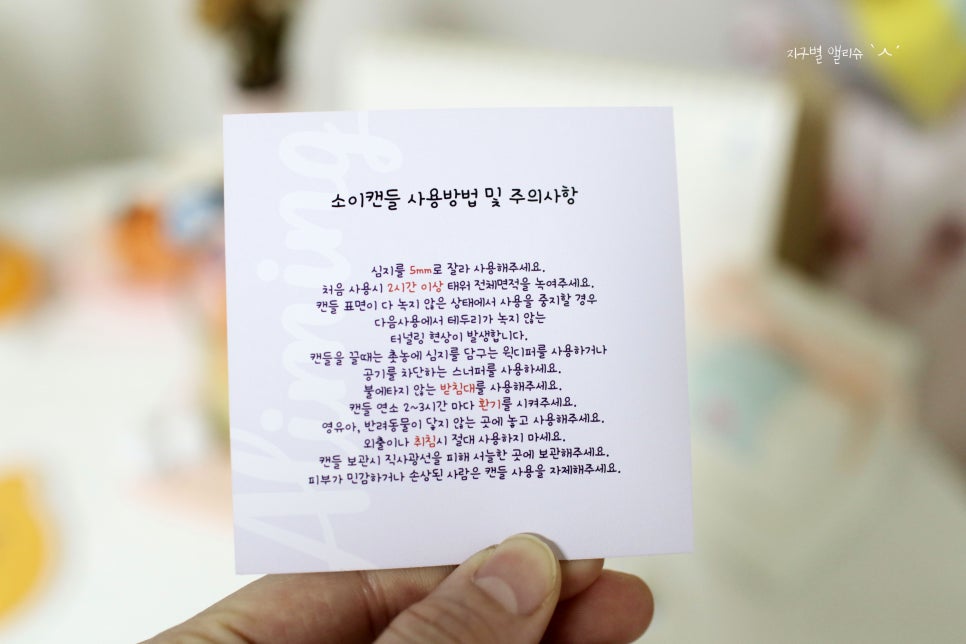 지구별 앨리슈 `ㅅ´
Aliming
소이캔들 사용방법 및 주의사항
심지를 5mm로 잘라 사용해주세요.
처음 사용시 2시간 이상 태워 전체면적을 녹여주세요.
캔들 표면이 다 녹지 않은 상태에서 사용을 중지할 경우
다음사용에서 테두리가 녹지 않는
터널링 현상이 발생합니다.
캔들을 끌때는 촛농에 심지를 담구는 윅디퍼를 사용하거나
공기를 차단하는 스너퍼를 사용하세요.
불에타지 않는 받침대를 사용해주세요.
캔들 연소 2~3시간 마다 환기를 시켜주세요.
영유아, 반려동물이 닿지 않는 곳에 놓고 사용해주세요.
외출이나 취침시 절대 사용하지 마세요.
캔들 보관시 직사광선을 피해 서늘한 곳에 보관해주세요.
피부가 민감하거나 손상된 사람은 캔들 사용을 자제해주세요.